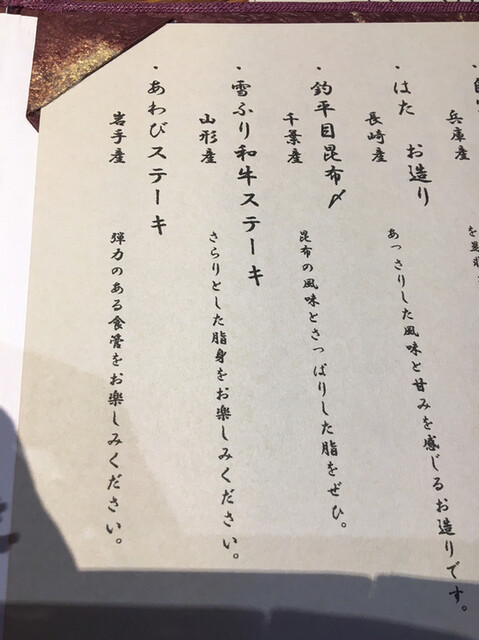 兵庫産
・はた お造り
長崎産
あっさりした風味と甘みを感じるお造りです。
・釣平目昆布〆
千葉産
昆布の風味とさっぱりした脂をぜひ。
・雪ふり和牛ステーキ
山形産
さらりとした脂身をお楽しみください。
・あわびステーキ
岩手産
弾力のある食管をお楽しみください。